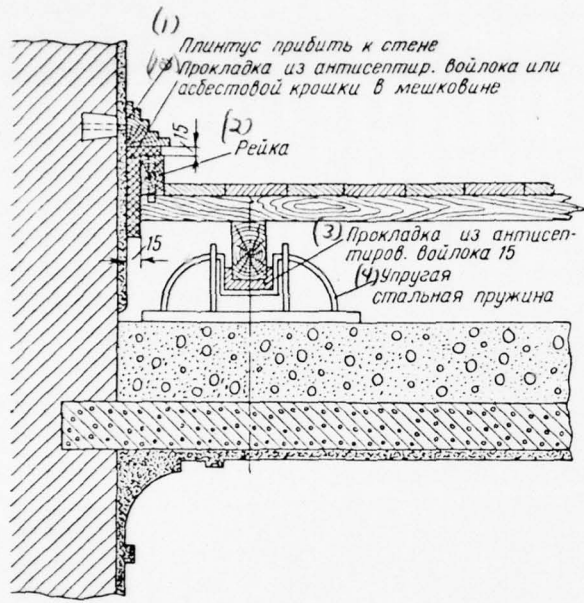 (1)
Плинтус прибить к стене
Прокладка из антисептир. войлока или
асбестовой крошки в мешковине
15
(2)
Рейка
15
(3) Прокладка из антисеп-
тиров. войлока 15
(4) Упругая
стальная пружина